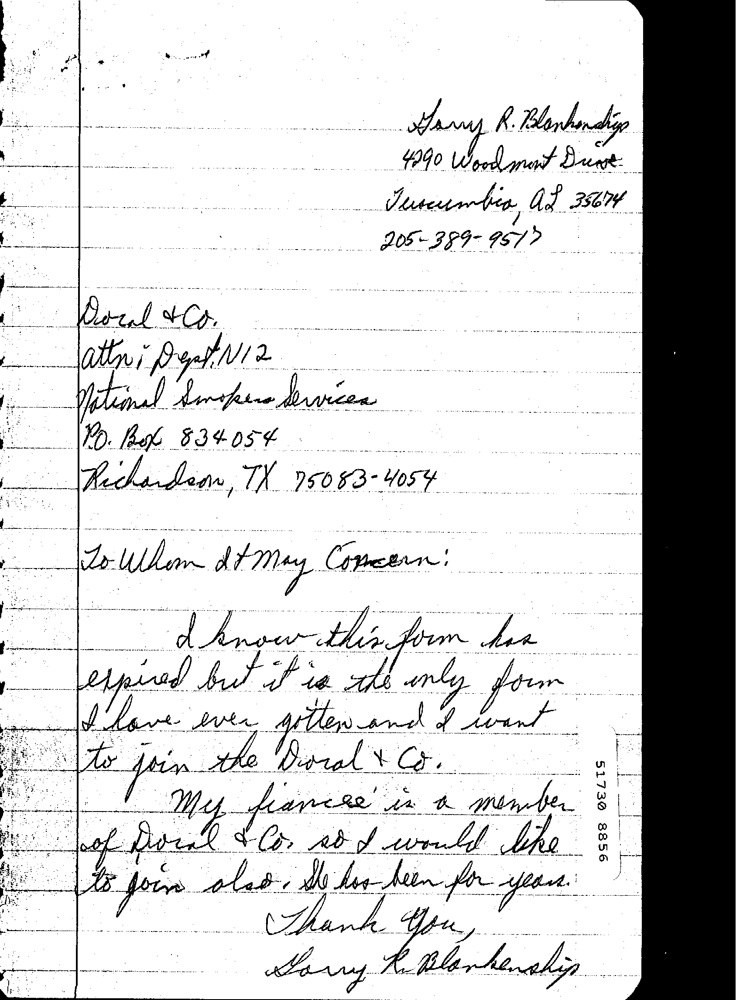 Larry R. Blankenship
4290 Woodmont Drive
Tuscumbia, AL 35674
205-389-9517
Doral & Co.
Attn: Dept. N12
National Smokers Services
P.O. Box 834054
Richardson, TX 75083-4054
To Whom It May Concern:
I know this form has
expired but it is the only form
I have ever gotten and I want
to join the Doral & Co.
My fiancee' is a member
of Doral & Co. so I would like
to join also. She has been for years.
Thank You,
Larry R. Blankenship
51730 8856